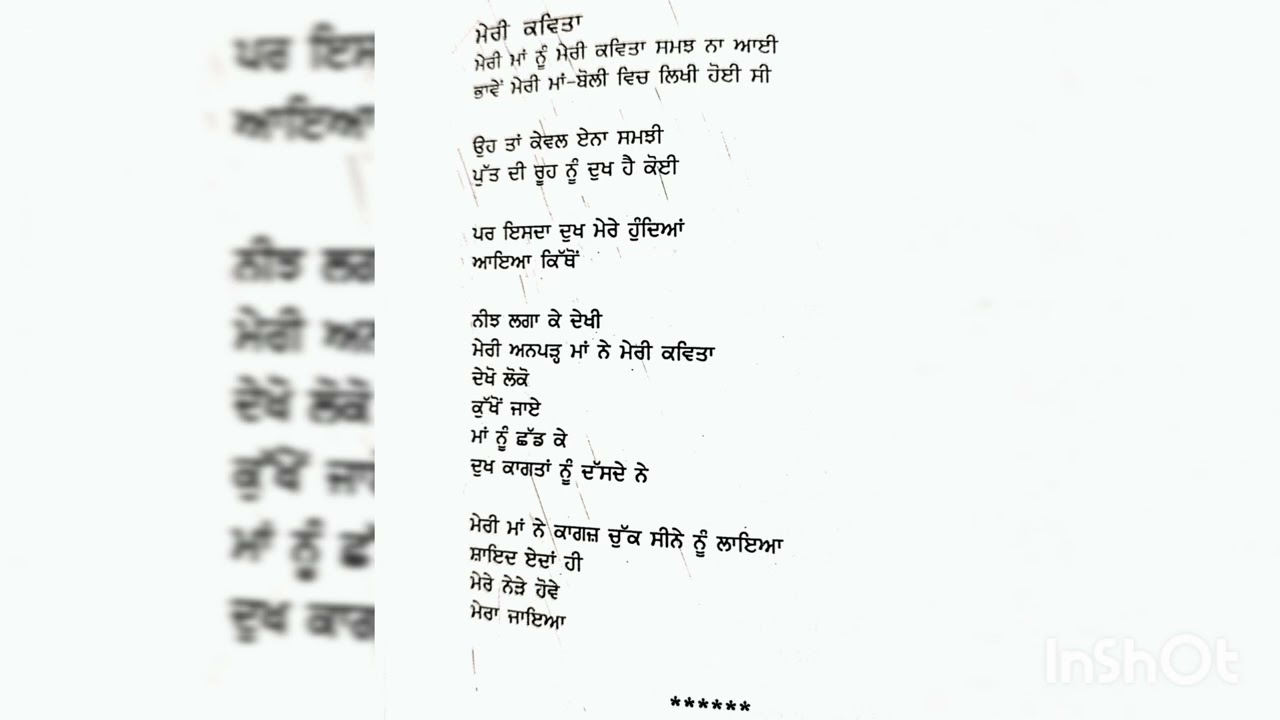 ਮੇਰੀ ਕਵਿਤਾ
ਮੇਰੀ ਮਾਂ ਨੂੰ ਮੇਰੀ ਕਵਿਤਾ ਸਮਝ ਨਾ ਆਈ
ਭਾਵੇਂ ਮੇਰੀ ਮਾਂ-ਬੋਲੀ ਵਿਚ ਲਿਖੀ ਹੋਈ ਸੀ
ਉਹ ਤਾਂ ਕੇਵਲ ਏਨਾ ਸਮਝੀ
ਪੁੱਤ ਦੀ ਰੂਹ ਨੂੰ ਦੁਖ ਹੈ ਕੋਈ
ਪਰ ਇਸਦਾ ਦੁਖ ਮੇਰੇ ਹੁੰਦਿਆਂ
ਆਇਆ ਕਿੱਥੋਂ
ਨੀਝ ਲਗਾ ਕੇ ਦੇਖੀ
ਮੇਰੀ ਅਨਪੜ੍ਹ ਮਾਂ ਨੇ ਮੇਰੀ ਕਵਿਤਾ
ਦੇਖੋ ਲੋਕੋ
ਕੁੱਖੋਂ ਜਾਏ
ਮਾਂ ਨੂੰ ਛੱਡ ਕੇ
ਦੁਖ ਕਾਗਤਾਂ ਨੂੰ ਦੱਸਦੇ ਨੇ
ਮੇਰੀ ਮਾਂ ਨੇ ਕਾਗਜ਼ ਚੁੱਕ ਸੀਨੇ ਨੂੰ ਲਾਇਆ
ਸ਼ਾਇਦ ਏਦਾਂ ਹੀ
ਮੇਰੇ ਨੇੜੇ ਹੋਵੇ
ਮੇਰਾ ਜਾਇਆ
******
ਪਰ ਇਸ
ਆਇਆ
ਨੀਝ ਲਗਾ
ਮੇਰੀ ਅਨ
ਦੇਖੋ ਲੋਕੋ
ਕੁੱਖੋਂ ਜਾ
ਮਾਂ ਨੂੰ ਛੱ
ਦੁਖ ਕਾਗ
InShOt